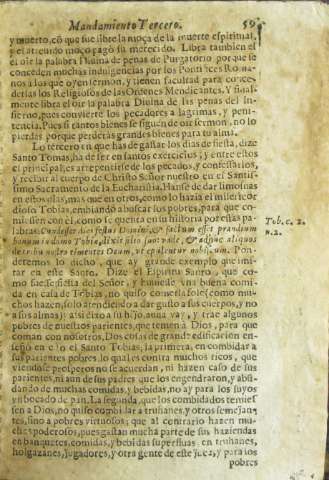 Mandamiento Tercero. 59
y muerto, cō que fue libre la moça de la muerte espiritual,
y el atreuido moço pagò su merecido. Libra tambien el
el oir la palabra Diuina de penas de Purgatorio por que se
conceden muchas indulgencias por los Pontifices Roma-
nos a los que oyen sermon, y tienen facultad para conce-
derlas los Religiosos de las Ordenes Mendicantes. Y final-
mente libra el oir la palabra Diuina de las penas del In-
fierno, pues conuierte los pecadores a lagrimas, y peni-
tencia. Pues si tantos bienes se siguen de oir sermon, no lo
pierdas porque perderàs grandes bienes para tu alma.
Lo tercero en que has de gastar los dias de fiesta, dize
Santo Tomas, ha de ser en santos exercicios, y entre estos
el principal es arrepentirse de los pecados, y confessarlos,
y recibir al cuerpo de Christo Señor nuestro en el Santis-
simo Sacramento de la Eucharistia. Hanse de dar limosnas
en estos dias, mas que en otros, como lo hazia el misericor
dioso Tobias, embiando a buscar sus pobres, para que co-
miessen con èl, como se cuenta en su historia por estas pa-
labras: Cum esset dies festus Domini, & factum esset prandium
bonum in domo Tobiæ, dixit filio suo: vade, & adduc aliquos
de tribu nostra timentes Deum, vt epulentur nobiscum. Pon-
deremos lo dicho, que ay grande exemplo que imi-
tar en este Santo. Dize el Espiritu Santo, que co-
mo fuesse fiesta del Señor, y huuiesse vna buena comi-
da en casa de Tobias, no quiso comersela solo (como mu-
chos hazen solo atendiendo a dar gusto a sus cuerpos, y no
a sus almas) assi dixo a su hijo, anda vay, y trae algunos
pobres de nuestros parientes, que temen à Dios, para que
coman con nosotros. Dos cosas de grande edificacion en-
señò en esto el Santo Tobias, la primera, en combidar a
sus parientes pobres, lo qual es contra muchos ricos, que
viendose prosperos no se acuerdan, ni hazen caso de sus
parientes, ni aun de sus padres que los engendraron, y abū-
dando de muchas comidas, y bebidas, no ay para los suyos
vn bocado de pan. La segunda, que los combidados temiess
en a Dios, no quiso combidar a truhanes, y otros semejan-
tes, sino a pobres virtuosos; que al contrario hazen mu-
chos poderosos, pues gastan mucha parte de sus haziendas
en banquetes, comidas, y bebidas superfluas en truhanes,
holgazanes, jugadores, y otra gente de este jaez, y para los
pobres
Tob. c. 2.
n. 2.